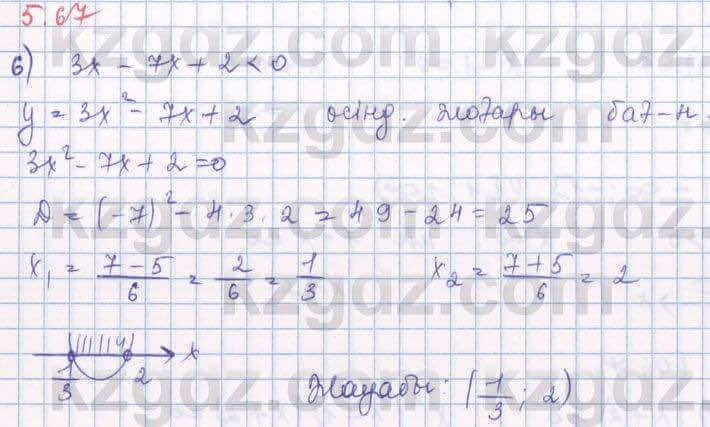 5.67
6) 3x - 7x + 2 < 0
y = 3x² - 7x + 2 осінд. жоғары бағ-н
3x² - 7x + 2 = 0
D = (-7)² - 4·3·2 = 49 - 24 = 25
x₁ = (7-5)/6 = 2/6 = 1/3 x₂ = (7+5)/6 = 2
1/3 2 x
Жауабы: (1/3; 2)
kzgdz.com